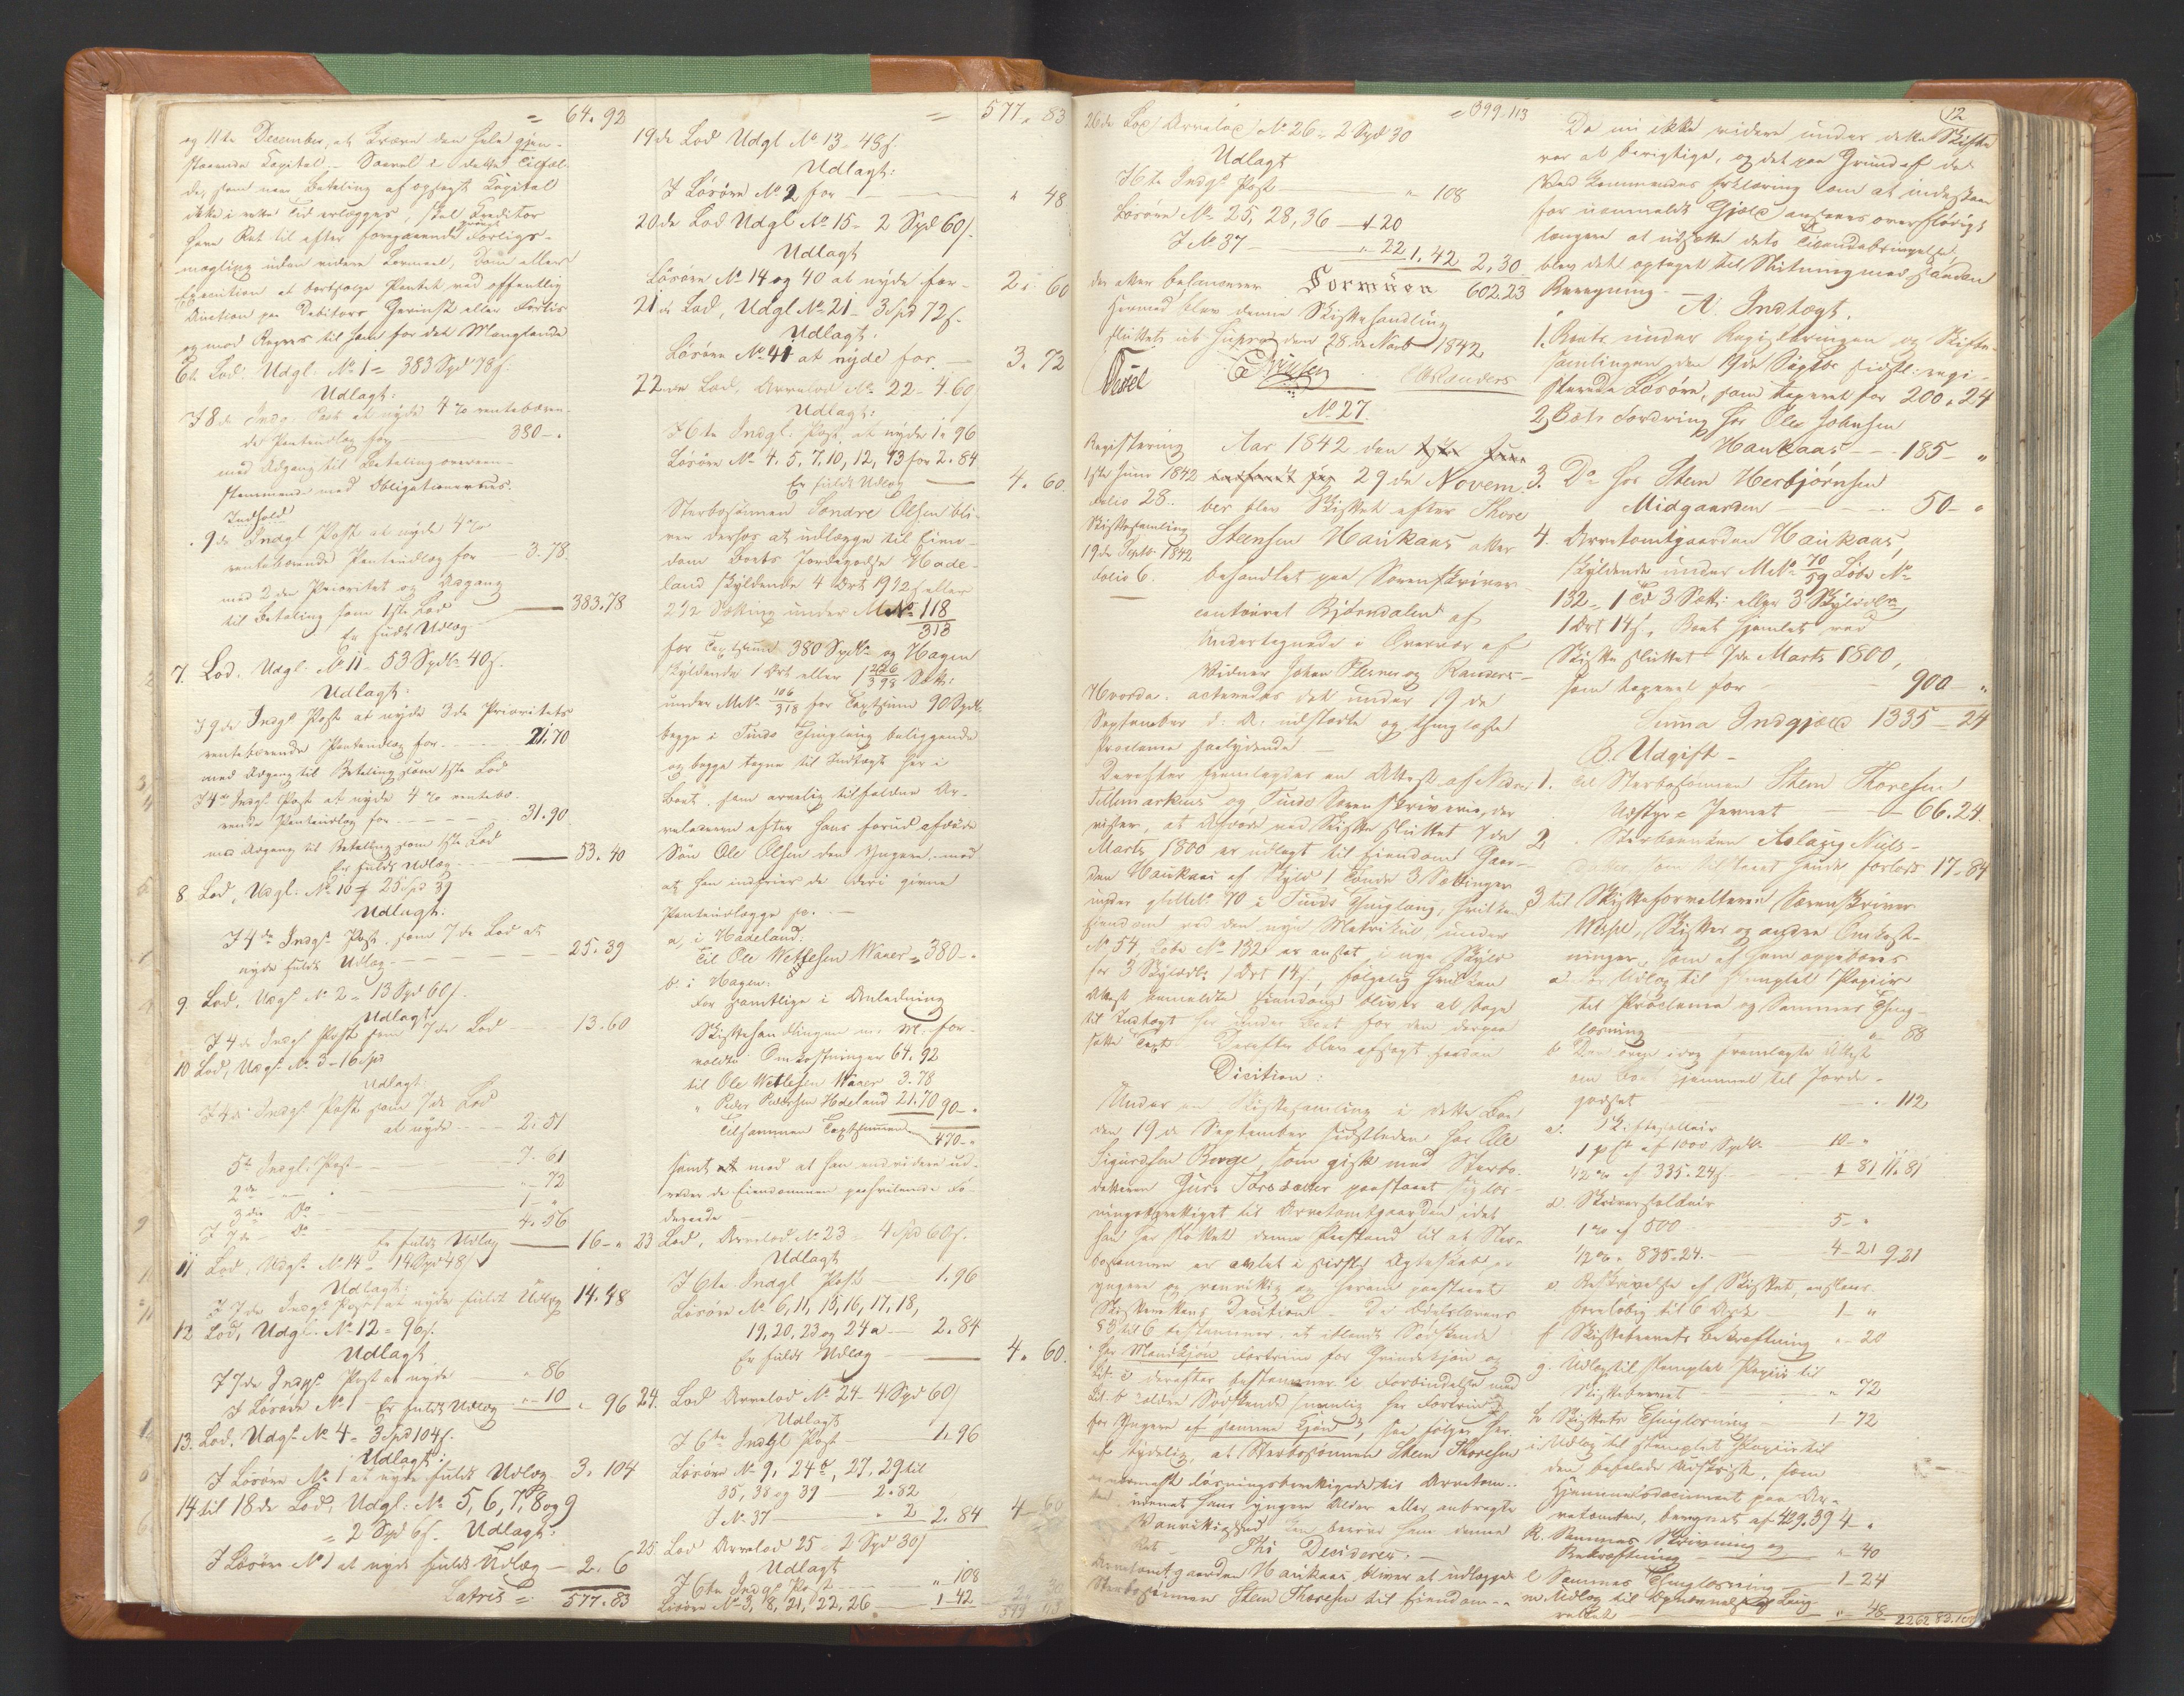 = 64. 92
og 11te December, at kræve den hele gjen-
staaende Kapital. Saavel i dette Tilfæl-
de, som naar Betaling af opsagt Kapital
ikke i rette Tid erlægges, skal Kreditor
have Ret til efter foregaaende Forligs-
mægling uden videre Lovmaal, Dom eller
Execution at bortsælge Pantet ved offentlig
Auction paa Debitors Gevinst eller Forlis
og med Regres til ham for det Manglende
6te Lod. Udgl. No 1 = 383 Spd 78 s.
Udlagt:
I 8de Indg. Post at nyde 4 % rentebæren-
de Panteudlæg for 380 - "
med Adgang til Betaling overeen-
stemmende med Obligationernes
Indhold
I 9de Indgl Post at nyde 4 %
rentebærende Panteudlæg for - 3. 78.
med 2den Prioritet og Adgang
til Betaling som 1ste Lod
Er fuldt Udlæg 383. 78
7. Lod. Udgl. No 11 - 53 Spdl. 40 s.
Udlagt:
I 9de Indgl Post at nyde 3de Prioritets
rentebærende Panteudlæg for 21. 70
med Adgang til Betaling som 1ste Lod
I 4de Indgl Post at nyde 4 % rentebæ-
rende Panteudlæg for 31. 90
med Adgang til Betaling som 1ste Lod
Er fuldt Udlæg 53. 40
8 Lod, Udgl. No 10 = 25 Spd 39
Udlagt:
I 4de Indgl. Post, som 7de Lod at
nyde fuldt Udlæg 25. 39
9. Lod. Udgl No 2 = 13 Spd 60 s.
Udlagt
I 4de Indgl Post som 7de Lod 13. 60
10 Lod, Udgl. No 3 - 16 Spd
Udlagt
I 4de Indgl Post som 7de Lod
at nyde 2. 51
5te Indgl. Post 7. 61
2de " - 72
3die Do 1 - "
I 7de Do 4. 56
Er fuldt Udlæg 16 - "
11 Lod, Udgl. No 14 = 14 Spd 48 s
Udlagt:
I 7de Indgl Post at nyde fuldt Udlæg 14. 48
12 Lod, Udgl. No 12 = 96 s.
Udlagt
I 7de Indgl Post at nyde " 86
I Løsøre No 1 " - 10
Er fuldt Udlæg " 96
13. Lod. Udgl. No 4 = 3 Spd 104 s.
Udlagt:
I Løsøre No 1 at nyde fuldt Udlæg 3. 104
14 til 18de Lod, Udgl. No 5, 6, 7, 8 og 9
= 2 Spd 6 s. Udlagt:
I Løsøre No 1 at nyde fuldt Udlæg 2. 6
Latris = 577. 83
= 577. 83
19de Lod Udgl No 13 - 48 s.
Udlagt:
I Løsøre No 2 for " 48
20de Lod Udgl No 15 - 2 Spd 60 s.
Udlagt
Løsøre No 14 og 40 at nyde for 2. 60
21de Lod, Udgl. No 21 - 3 Spd 72 s.
Udlagt.
Løsøre No 41 at nyde for 3. 72
22de Lod, Arvelod No 22 - 4. 60
Udlagt:
I 6te Indgl. Post, at nyde 1 " 96
Løsøre No 4. 5, 7, 10, 12, 13 for 2. 84
Er fuldt Udlæg 4. 60.
Sterbosønnen Sondre Olsen bli-
ver derhos at udlægge til Eien-
dom Boets Jordegods Hade-
land skyldende 4 Ort 19 1/2 s eller
2 1/2 Sætting under MNo 118/313
for Taxtsum 380 Spdlr og Hagen
skyldende 1 Ort eller 1 206/398 Sætt:
under MNo 106/318 for Taxtsum 90 Spdl.
begge i Tinds Thinglaug beliggende
og begge tagne til Indtægt her i
Boet, som arvelig tilfalden Ar-
veladeren efter hans forud afdøde
Søn Ole Olsen den Yngere, mod
at han indfrier de deri givne
Panteudlægge pr. -
a, i Hadeland:
til Ole Wetlesen Waaer = 380 - "
b. i Hagen:
For samtlige i Anledning
Skiftehandlingen m. M. for-
voldte Omkostninger 64. 92
til Ole Wetlesen Waaer 3. 78
" Peder Pedersen Hadeland 21. 70 90 - "
Tilsammen Taxtsummen 470 - "
samt med at han end videre ud-
reder de Eiendommen paahvilende Fø-
deraade
23 Lod, Arvelod No 23 4 Spd 60 s.
Udlagt
I 6te Indgl Post 1. 96
Løsøre No 6, 11, 15, 16, 17, 18,
19, 20, 23 og 24 a 2. 84
Er fuldt Udlæg 4. 60.
24. Lod Arvelod No 24 4 Spd 60 s
Udlagt
I 6te Indgl Post 1. 96
Løsøre No 9, 24 b, 27, 29 til
35, 38 og 39 2. 82
I No 37 " 2 2. 84 4 60
25. Lod Arvelod 25 = 2 Spd 30 s
Udlagt
I 6te Indgl Post " 108
Løsøre No 3, 8, 21, 22, 26 1 - 42
= 599. 113
26de Lod, Arvelod, No 26 = 2 Spd 30
Udlagt
I 6te Indgl Post " 108
Løsøre No 25, 28, 36 1. 20
I No 37 " 22 1. 42 2. 30
der atter balancerer Formuen 602. 23
Hermed blev denne Skiftehandling
sluttet ut supra den 28de Novb 1842.
No 27.
Registering
1ste Juni 1842
Folio 28.
Skiftesamling
19de Septb. 1842
Folio 6.
Aar 1842 den
29de Novem-
ber blev Skiftet efter Thore
Steensen Haukaas atter
behandlet paa Sorenskriver-
contoiret Bjørndalen af
Undertegnede i Overvær af
Vidner Johan Plesner og Randers -
Hvorda: actoredes det under 19de
September d: A: udstædte og thinglæste
Proclama saalydende. -
Derefter fremlagdes en Attest af Nedre
Tellemarkens og Tinds Sorenskriverie, der
viser, at Afdøde ved Skifte sluttet 7de
Marts 1800 er udlagt til Eiendom Gaar-
den Haukaas af Skyld 1 Tønde 3 Sættinger
under gl. MNo 70 i Tinds Thinglaug, hvilken
Eiendom ved den nye Matrikul under
No 54, Løbe No 132 er ansat i nye Skyld
for 3 Skylddlr 1 Ort 14 s, følgelig hvilken
Attest anmeldte Eiendom bliver at tage
til Indtægt her under Boet for den derpaa
satte Taxt. Derefter blev afsagt saadan
Dicition:
Under en Skiftesamling i dette Boe
den 19de September sidstleden har Ole
Sigurdsen Borge som gift med Sterbo-
datteren Guro Thoresdatter paastaaet sig løs-
ningsberettiget til Arvetomtgaarden idet
han har støttet denne Paastand til at Ster-
bosønnen er avlet i sidste Ægteskab, er
yngere og vanvittig og herom paastaaet
Skifterettens Decition. - Da Odelslovens
§ 8 til 6 bestemmer, at iblandt Sødskende
har Mandkjøn Fortrin for Qvindekjøn og
Lit. c derefter bestemmer i Forbindelse med
Lit. b ældre Sødskende nemlig har Fortrin
for Yngere af samme Kjøn, saa følger her-
af tydelig, at Sterbosønnen Steen Thoresen
er nærmest løsningsberettiget til Arvetom-
ten, uanset hans yngere Alder eller anbragte
Vanvittighed kan berøve ham denne
Ret - Thi Decideres: -
Arvetomtgaarden Haukaas bliver at udlægge
Sterbosønnen Steen Thoresen til Eiendom - "
12
Da nu ikke videre under dette Skifte
var at berigtige, og det paa Grund af de
Ved Kommendes Erklæring om at indestaae
for uanmeldt Gjæld ansaaes overflødigt
længere at udsætte dets Tilendebringelse,
blev det optaget til Slutning med saadan
Beregning.
A. Indtægt.
1. Boets under Registeringen og Skifte-
samlingen den 19de Septbr sidstl. regi-
sterede Løsøre, som taxeret for 200 " 24
2. Boets Fordring hos Ole Johnsen
Haukaas 185 - "
3. Do hos Steen Herbjørnsen
Midgaarden 50 - "
4. Arvetomtgaarden Haukaas,
skyldende under MNo 70/59 Løbe No
132 = 1 Td 3 Sætt: eller 3 Skylddlr
1 Ort 14 s, Boet hjemlet ved
Skifte sluttet 7de Marts 1800,
som taxeret for 900 - "
Suma Indgjæld 1335 - 24
B. Udgift -
1. til Sterbosønnen Steen Thoresen
Udstyr = Jevnet 66. 24.
2 Sterboenken Aslaug Niels-
datter som tilstaaet hendes forlods 17 - 84
3 til Skifteforvalteren Sorenskriver
Wessel, Skifte og anden Omkost-
ninger, som af ham oppebæres
a Udlæg til stemplet Papiir
til Proclama og Sammes Thing-
læsning " 88
b Den ovenidag fremlagte Attest
om Boets Hjemmel til Jorde-
godset " 112
c. Skiftesallair
1 pCt af 1000 Spdlr 10 - "
1/2 % af 335 - 24 s 1 81 11. 81
d Skriversallair
1 % af 500 5 - "
1/2 % " 835 - 24. 4 - 21 9 - 21
e Beskrivelse af Skiftet, ansлaaes
foreløbig til 6 Ark 1 - "
f Skiftebrevets Bekræftning " - 20
g. Udlæg til stemplet Papiir til
Skiftebrevet " 72
h Skiftets Thinglæsning 1 - 72
i Udlæg til stemplet Papiir til
den befalede Udskrift, som
Hjemmelsdocument paa Ar-
vetomten, beregnet af 429. 39 4 - "
k. Sammes Skrivning og
Bekræftning " - 40
l Sammes Thinglæsning 1 - 24
" - 48